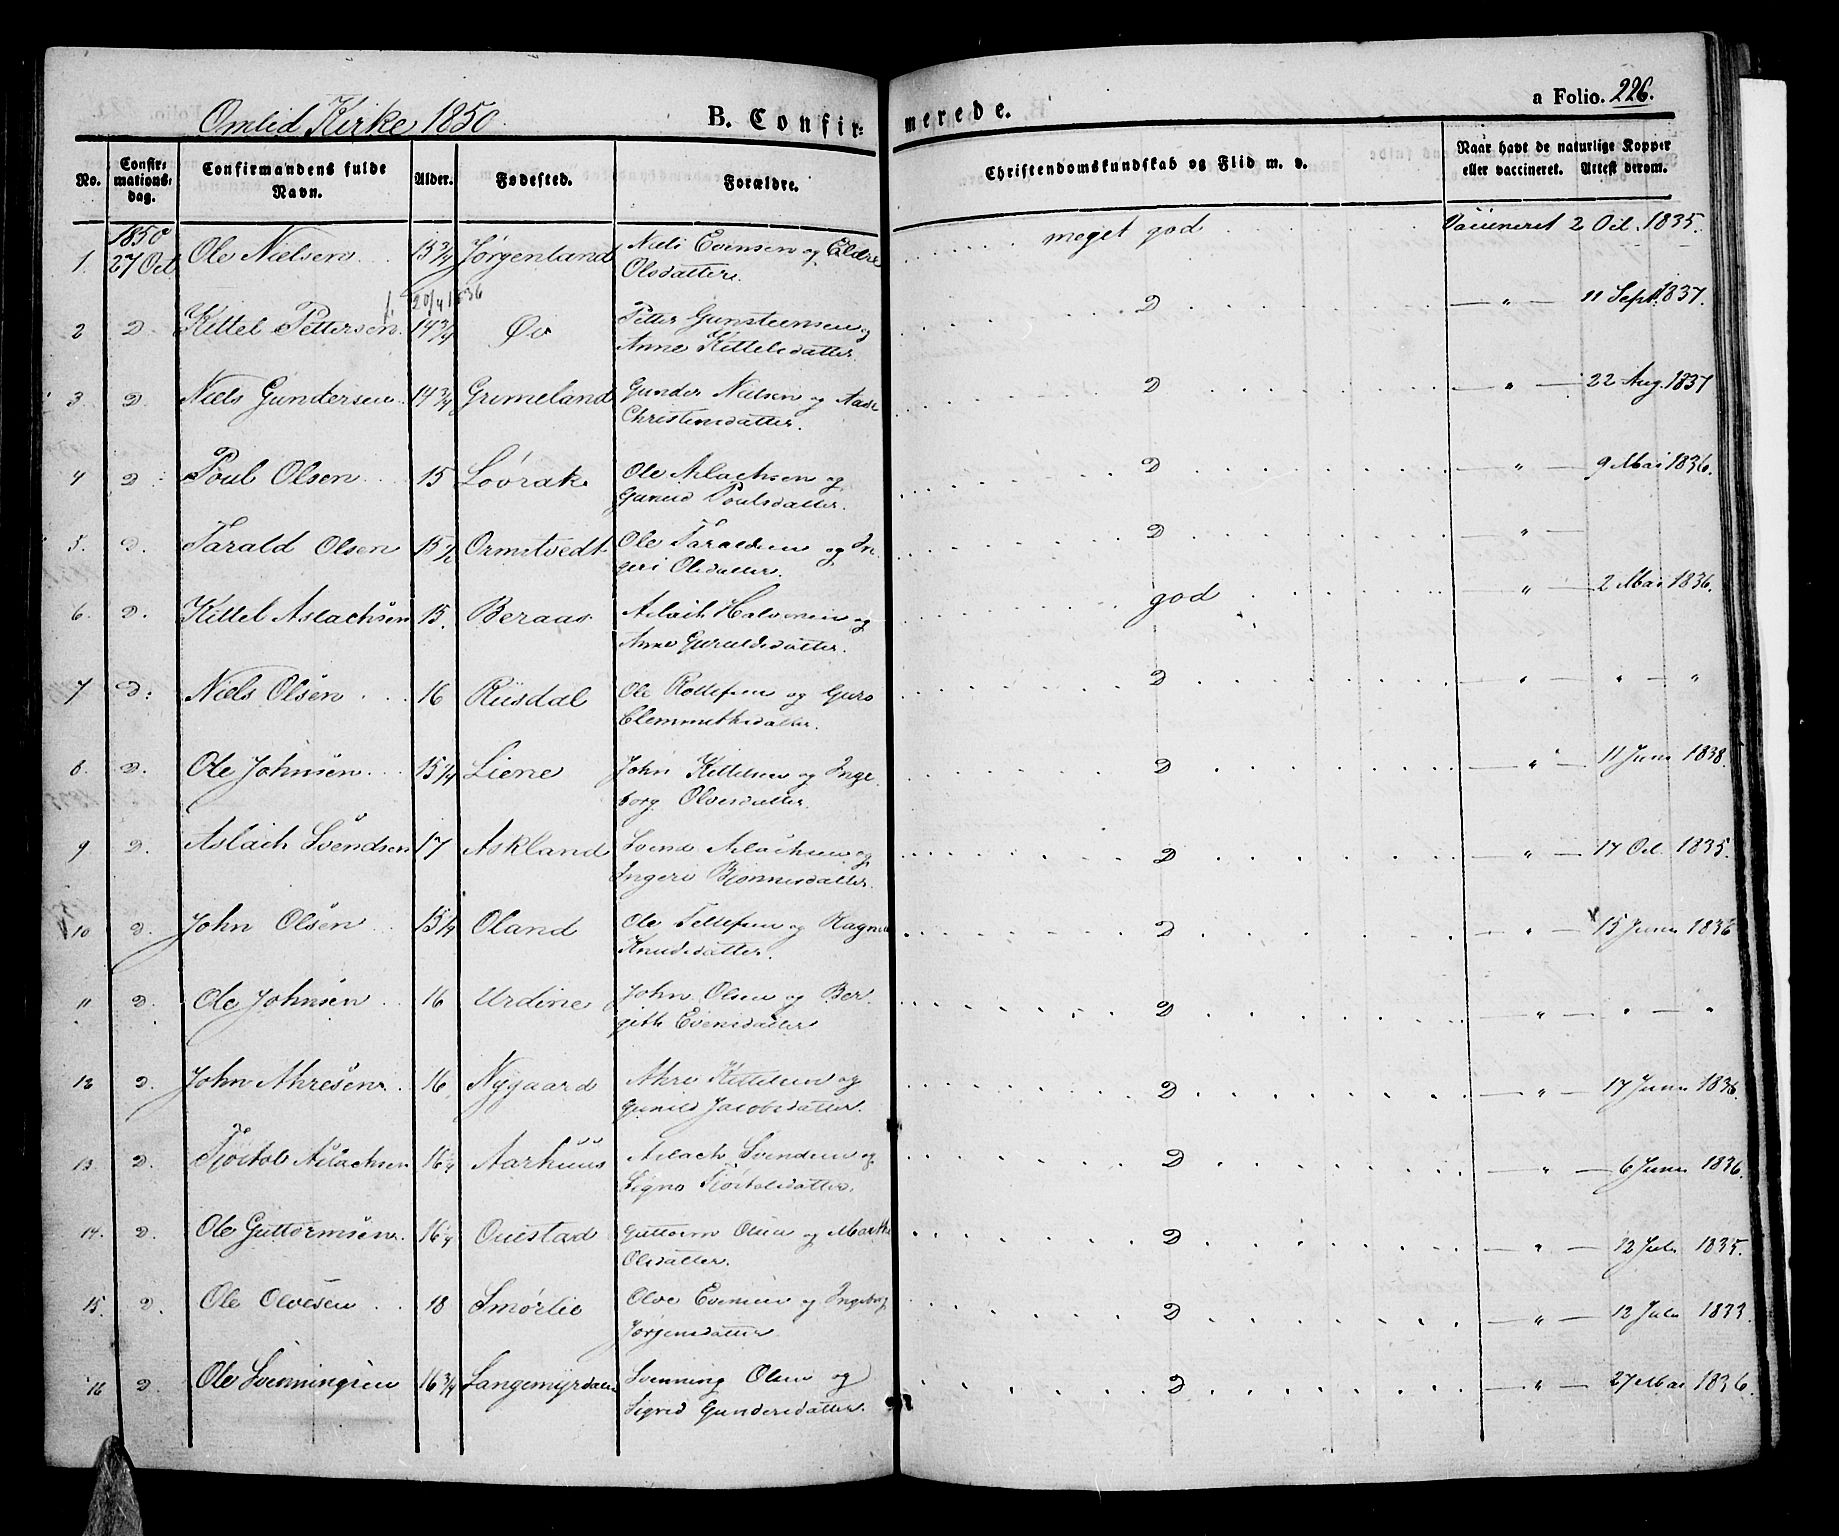 Omlid Kirke 1850
B. Confirmerede.
a Folio. 226.
No. Confirmationsdag. Confirmandens fulde Navn. Alder. Fødested. Forældre. Christendomskundskab og Flid m. v. Naar havt de naturlige Kopper eller vaccineret. Attest derom.
1. 1850 27 Oct. Ole Nielsen 15 3/4 Jørgenland Niels Evensen og
Olsdatter. meget god Vaccineret 2 Oct. 1835.
f. 20/4 1836
2 D. Kittel Pettersen 14 3/4 Øv Petter Gunsteensen og
Anne Kittelsdatter. D — " — 11 Sept. 1837.
3. D. Niels Gundersen 14 3/4 Grimeland Gunder Nielsen og Aase
Christensdatter. D — " — 22 Aug. 1837
4 D. Poul Olsen 15 Løvrak Ole Aslachsen og
Guneld Poulsdatter. D — " — 9 Mai 1836.
5. D. Tarald Olsen 15 1/2 Ormstvedt Ole Taraldsen og In-
geri Olsdatter. D — " —
6. D. Kittel Aslachsen 15. Beraas Aslach Halvorsen og
Anne god " 2 Mai 1836.
7 D: Niels Olsen 16 Riisdal Ole Rollefsen og Guro
Clemmetsdatter. D " " — "
8. D. Ole Johnsen 15 1/4 Liene John Kittelsen og Inge-
borg Olvesdatter. D — " — 11 Juni 1838.
9. D. Aslach Svendsen 17 Askland Svend Aslachsen og
Ingeri Bjønnesdatter. D — " — 17 Oct. 1835.
10 D. John Olsen 15 1/4 Oland Ole Tellefsen og Ragne
Knudsdatter. D — " — 15 Juni 1836
11 D. Ole Johnsen 16 Urdine John Olsen og Ber-
gith Evensdatter D — " — " — "
12 D. John Ahresen 16 Nygaard Ahre Kittelsen og
Gunild Jacobsdatter. D — " — 17 Juni 1836.
13. D. Tjøstol Aslachsen 16 1/4 Aarhuus Aslach Svendsen og
Signe Tjøstolsdatter. D — " — 6 Juni 1836.
14. D. Ole Guttormsen 16 1/4 Ouestad Guttorm Olsen og Marthe
Olsdatter. D — " — 12 Juli 1835.
15. D. Ole Olvesen 18 Smørlie Olve Evensen og Ingeborg
Jørgensdatter D — " — 12 Juli 1833.
16 D. Ole Svenningsen 16 3/4 Langemyrdalen Svenning Olsen og
Sigrid Gundersdatter. D — " — 27 Mai 1836.